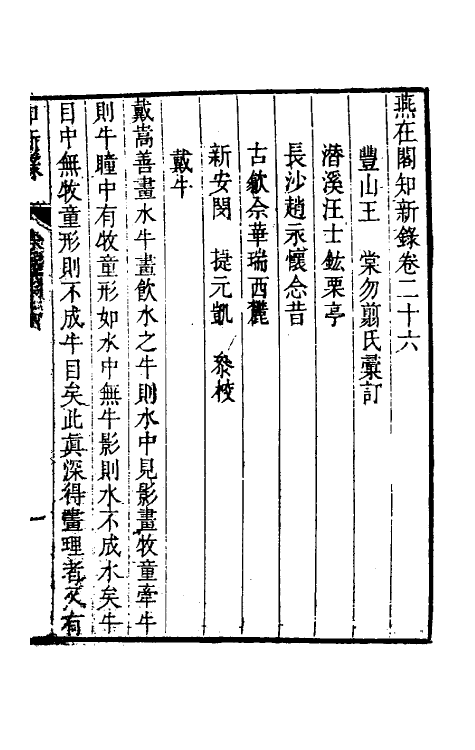 燕在閣知新錄卷二十六
豐山王　棠勿翦氏彚訂
潛溪汪士鋐栗亭
長沙趙永懷念昔
古歙佘華瑞西麓
新安閔　𢮦元凱　叅校
戴牛
戴嵩善畫水牛畫飮水之牛則水中見影畫牧童牽牛
則牛瞳中有牧童形如水中無牛影則水不成水矣牛
目中無牧童形則不成牛目矣此眞深得畫理者又有